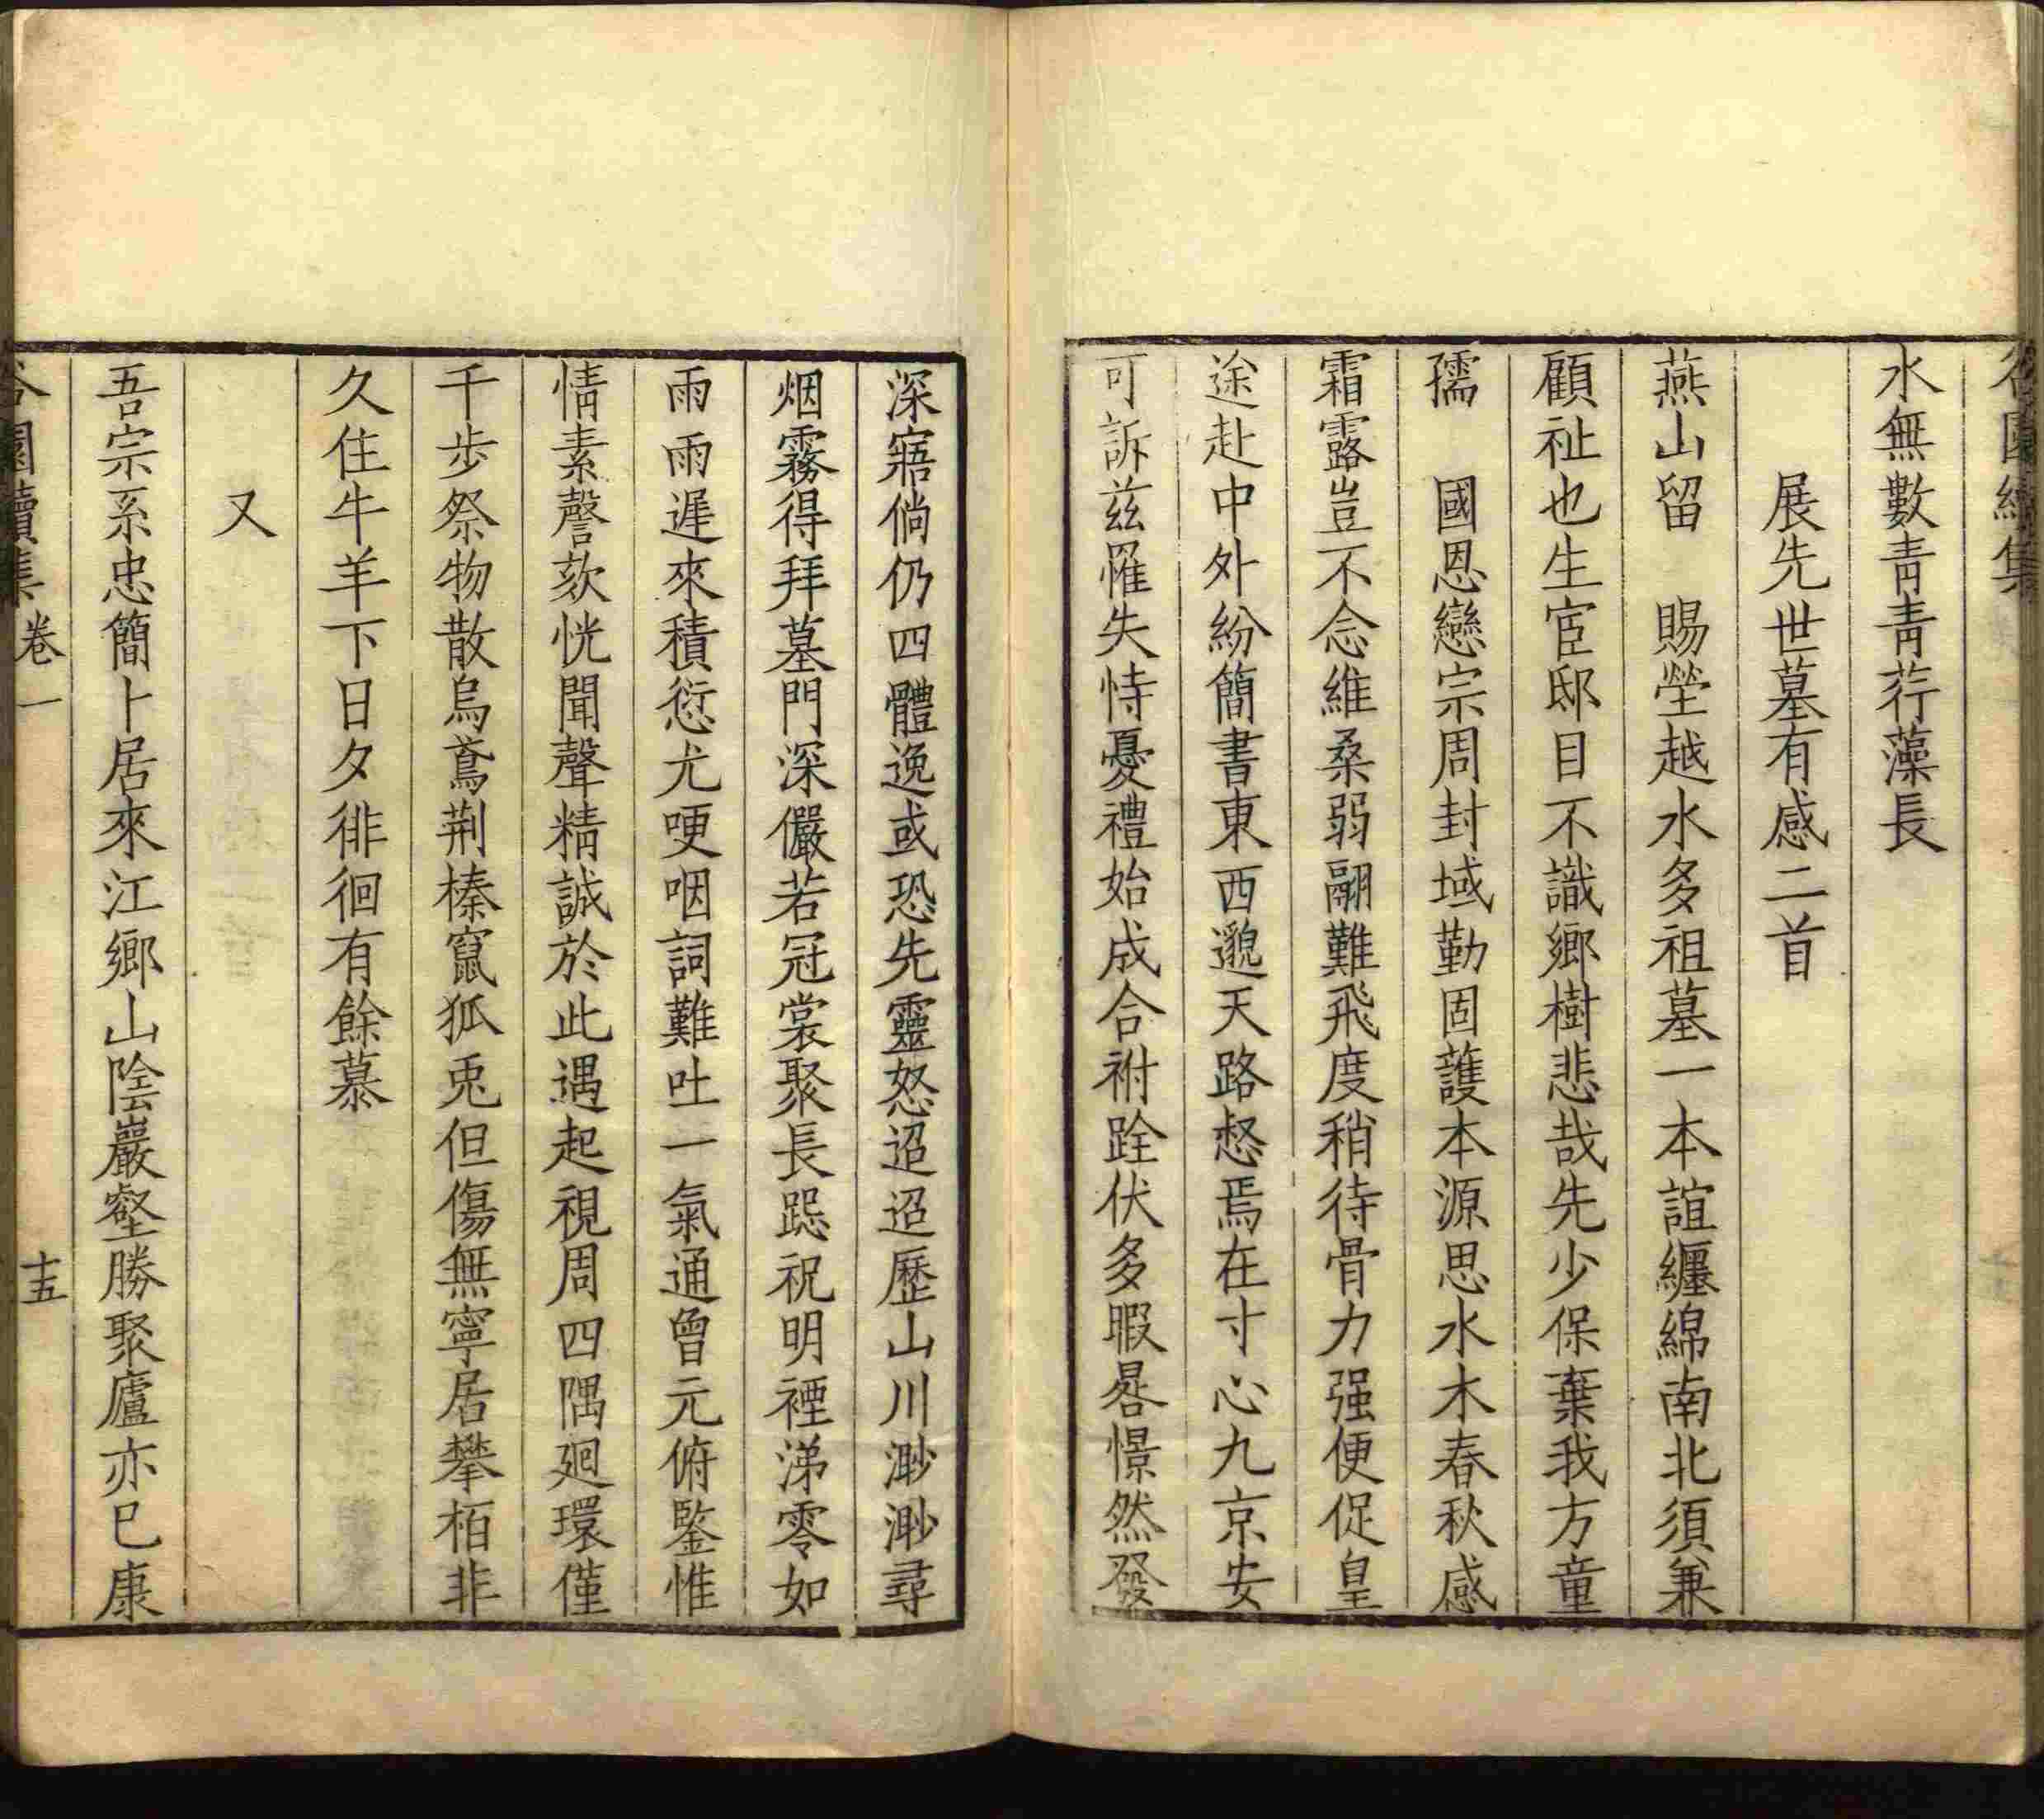 水無數青青荇藻長
展先世墓有感二首
燕山留　賜塋越水多祖墓一本誼纏綿南北須兼
顧祉也生宦邸目不識鄉樹悲哉先少保棄我方童
孺　國恩戀宗周封域勤固護本源思水木春秋感
霜露豈不念維桑弱翮難飛度稍待骨力强便促皇
途赴中外紛簡書東西邈天路惄焉在寸心九京安
可訴兹罹失恃憂禮始成合祔跧伏多暇晷憬然發
深寤倘仍四體逸或恐先靈怒迢迢歷山川渺渺尋
烟霧得拜墓門深儼若冠裳聚長跽祝明禋涕零如
雨雨遲來積愆尤哽咽詞難吐一氣通曾元俯鑒惟
情素謦欬恍聞聲精誠於此遇起視周四隅廻環僅
千步祭物散烏鳶荆榛竄狐兎但傷無寧居攀栢非
久住牛羊下日夕徘徊有餘慕
又
吾宗系忠簡卜居來江鄉山陰巖壑勝聚廬亦巳康
谷園續集　卷一　十五